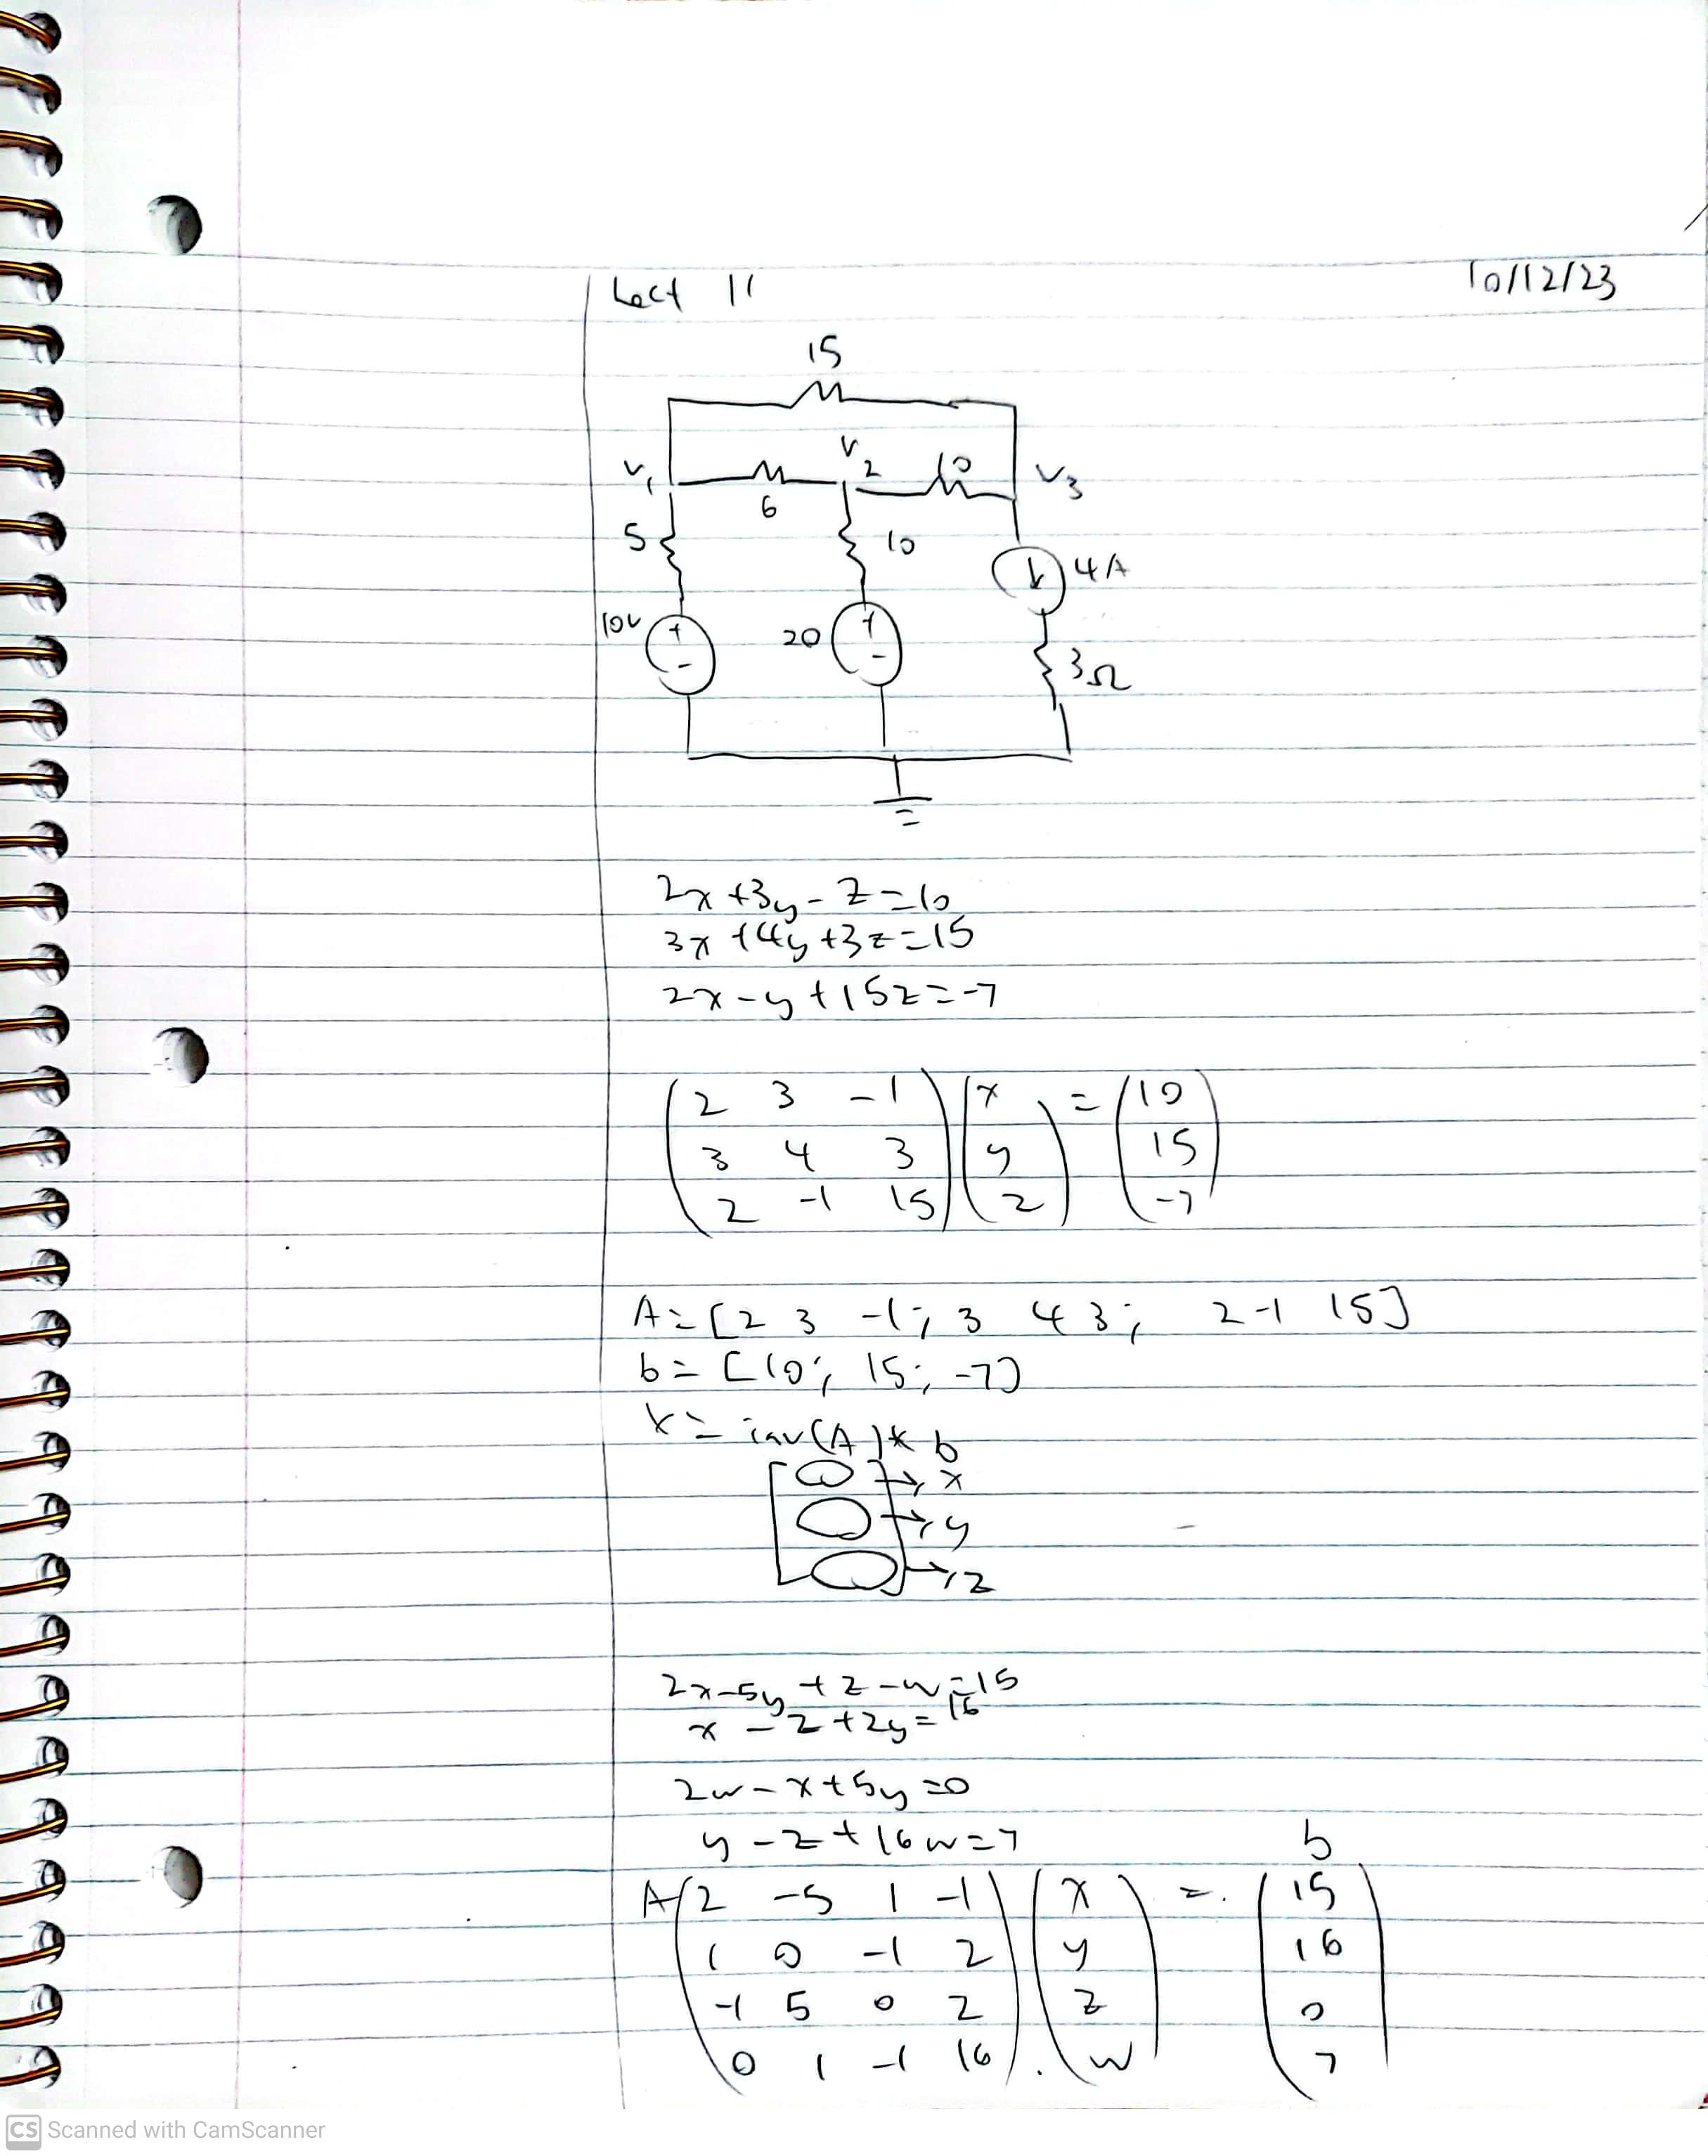 Lect 11 10/12/23
15
V1 6 V2 10 V3
5 10 4A
10V + - 20 + - 3Ω
2x + 3y - z = 10
3x + 4y + 3z = 15
2x - y + 15z = -7
( 2 3 -1 ) ( x ) = ( 10 )
( 3 4 3 ) ( y ) ( 15 )
( 2 -1 15 ) ( z ) ( -7 )
A = [2 3 -1; 3 4 3; 2 -1 15]
b = [10; 15; -7]
x = inv(A)* b
→ x
→ y
→ z
2x - 5y + z - w = 15
x - z + 2y = 16
2w - x + 5y = 0
y - z + 16w = 7
b
A ( 2 -5 1 -1 ) ( x ) = ( 15 )
( 1 0 -1 2 ) ( y ) ( 16 )
( -1 5 0 2 ) ( z ) ( 0 )
( 0 1 -1 16 ) . ( w ) ( 7 )
CS Scanned with CamScanner